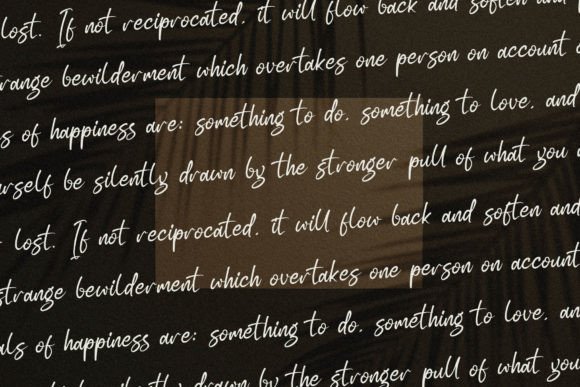 lost. If not reciprocated, it will flow back and soften and
strange bewilderment which overtakes one person on account
s of happiness are: something to do, something to love, and
urself be silently drawn by the stronger pull of what you
lost. If not reciprocated, it will flow back and soften and
strange bewilderment which overtakes one person on account
als of happiness are: something to do, something to love, an
yourself be silently drawn by the stronger pull of what you